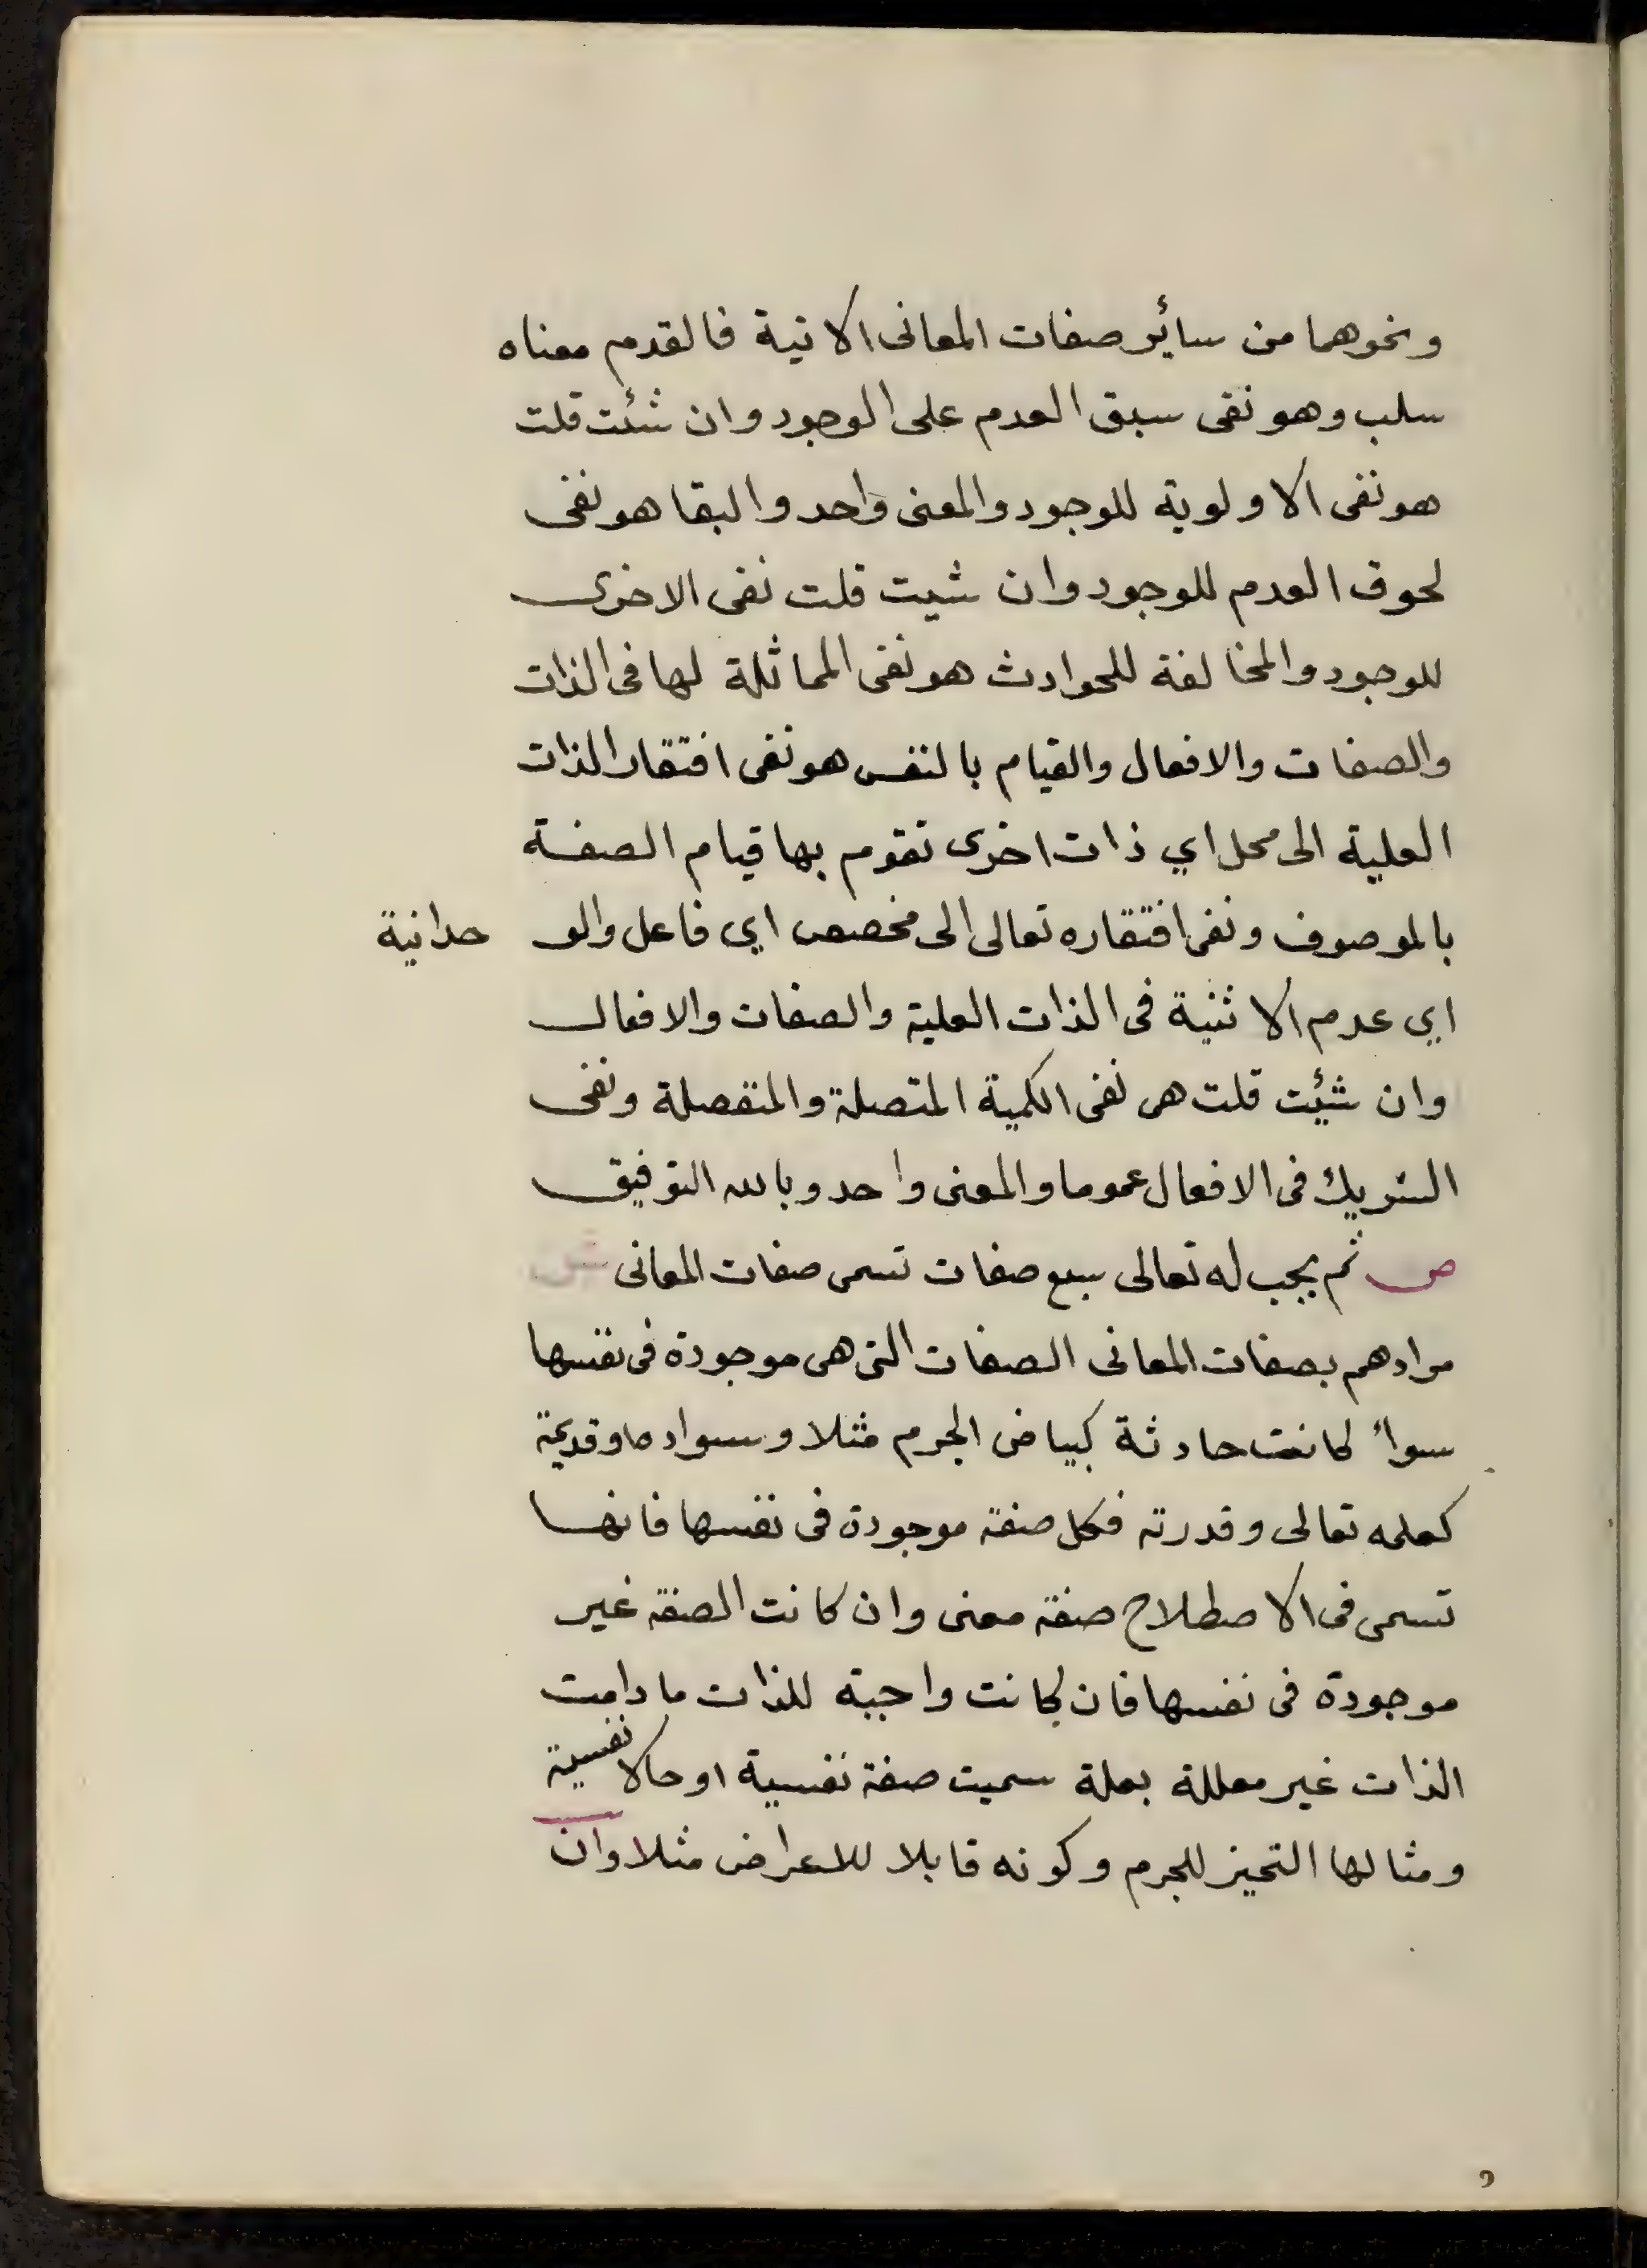 ونحوهما من سائر صفات المعانى الاتية فالقدم معناه
سلب وهو نفى سبق العدم على الوجود وان شئت قلت
هو نفى الاولوية للوجود والمعنى واحد والبقا هو نفى
لحوق العدم للوجود وان شيت قلت نفى الاخرى
للوجود والمخالفة للحوادث هو نفى المماثلة لها فى الذات
والصفات والافعال والقيام بالنفس هو نفى افتقار الذات
العلية الى محل اي ذات اخرى تقوم بها قيام الصفة
بالموصوف ونفى افتقاره تعالى الى مخصص اي فاعل والو حدانية
اي عدم الاثنية فى الذات العلية والصفات والافعال
وان شئت قلت هى نفى الكمية المتصلة والمنفصلة ونفى
الشريك فى الافعال عموما والمعنى واحد وبالله التوفيق
ص ثم يجب له تعالى سبع صفات تسمى صفات المعانى ش
مرادهم بصفات المعانى الصفات التى هى موجودة فى نفسها
سواء كانت حادثة كبياض الجرم مثلا وسواده او قديمة
كعلمه تعالى وقدرته فكل صفة موجودة فى نفسها فانها
تسمى فى الاصطلاح صفة معنى وان كانت الصفة غير
موجودة فى نفسها فان كانت واجبة للذات ما دامت
الذات غير معللة بعلة سميت صفة نفسية او حالا نفسية
ومثالها التحيز للجرم وكونه قابلا للاعراض مثلا وان
و